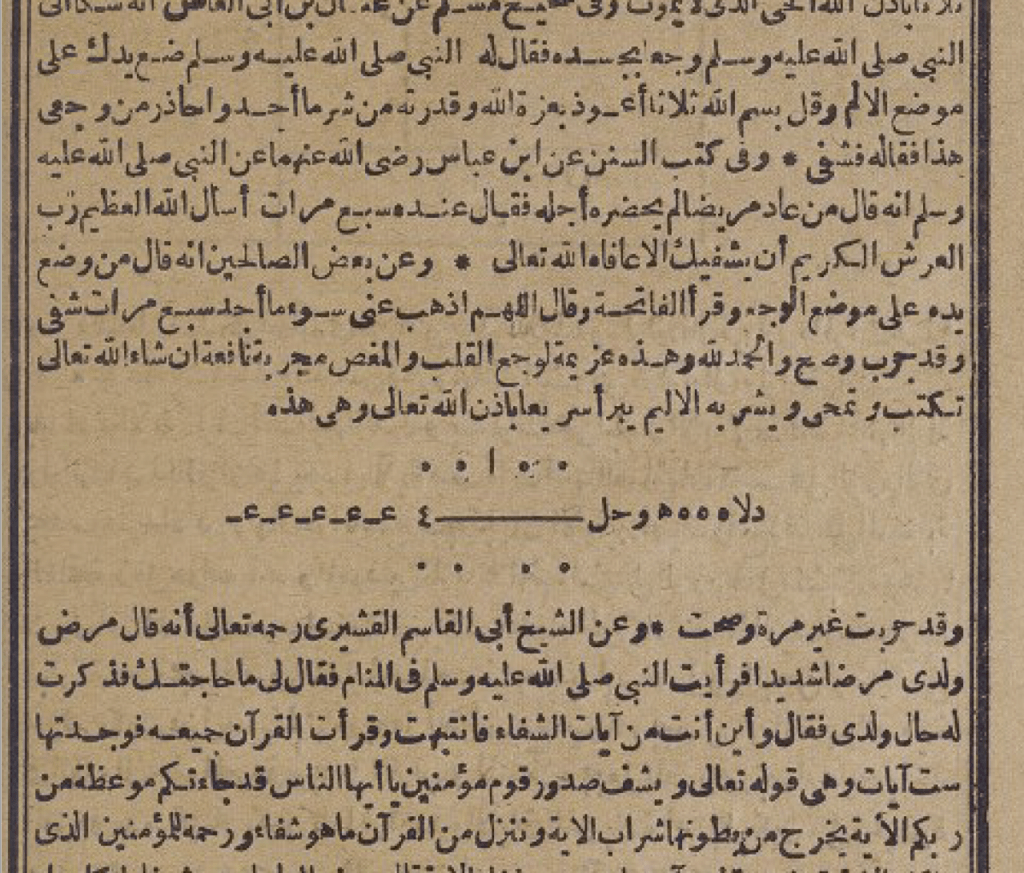 الله الحى الذى لا يموت وفى صحيح مسلم عن عثمان بن أبى العاص انه شكا الى
النبى صلى الله عليه وسلم وجعا بجسده فقال له النبى صلى الله عليه وسلم ضع يدك على
موضع الالم وقل بسم الله ثلاثا أعوذ بعزة الله وقدرته من شر ما أجد واحاذر من وجعى
هذا فقاله فشفى * وفى كتب السنن عن ابن عباس رضى الله عنهما عن النبى صلى الله عليه
وسلم انه قال من عاد مريضا لم يحضره أجله فقال عنده سبع مرات أسأل الله العظيم رب
العرش الكريم أن يشفيك الا عافاه الله تعالى * وعن بعض الصالحين انه قال من وضع
يده على موضع الوجع وقرأ الفاتحة وقال اللهم اذهب عنى سوء ما أجد سبع مرات شفى
وقد جرب وصح والحمد لله وهذه عزيمة لوجع القلب والمغص مجربة نافعة ان شاء الله تعالى
تكتب وتمحى ويشربه الاليم يبرأ سريعا باذن الله تعالى وهى هذه
• • ا • •
دلا ه ه ه ه وحل ــــــــ ٤ عـ عـ عـ عـ عـ
• • • •
وقد جربت غير مرة وصحت * وعن الشيخ أبى القاسم القشيرى رحمه تعالى أنه قال مرض
ولدى مرضا شديدا فرأيت النبى صلى الله عليه وسلم فى المنام فقال لى ما حاجتك فذكرت
له حال ولدى فقال وأين أنت من آيات الشفاء فانتبهت وقرأت القرآن جميعه فوجدتها
ست آيات وهى قوله تعالى ويشف صدور قوم مؤمنين يا أيها الناس قد جاءتكم موعظة من
ربكم الآية يخرج من بطونها شراب الاية وننزل من القرآن ما هو شفاء ورحمة للمؤمنين الذى